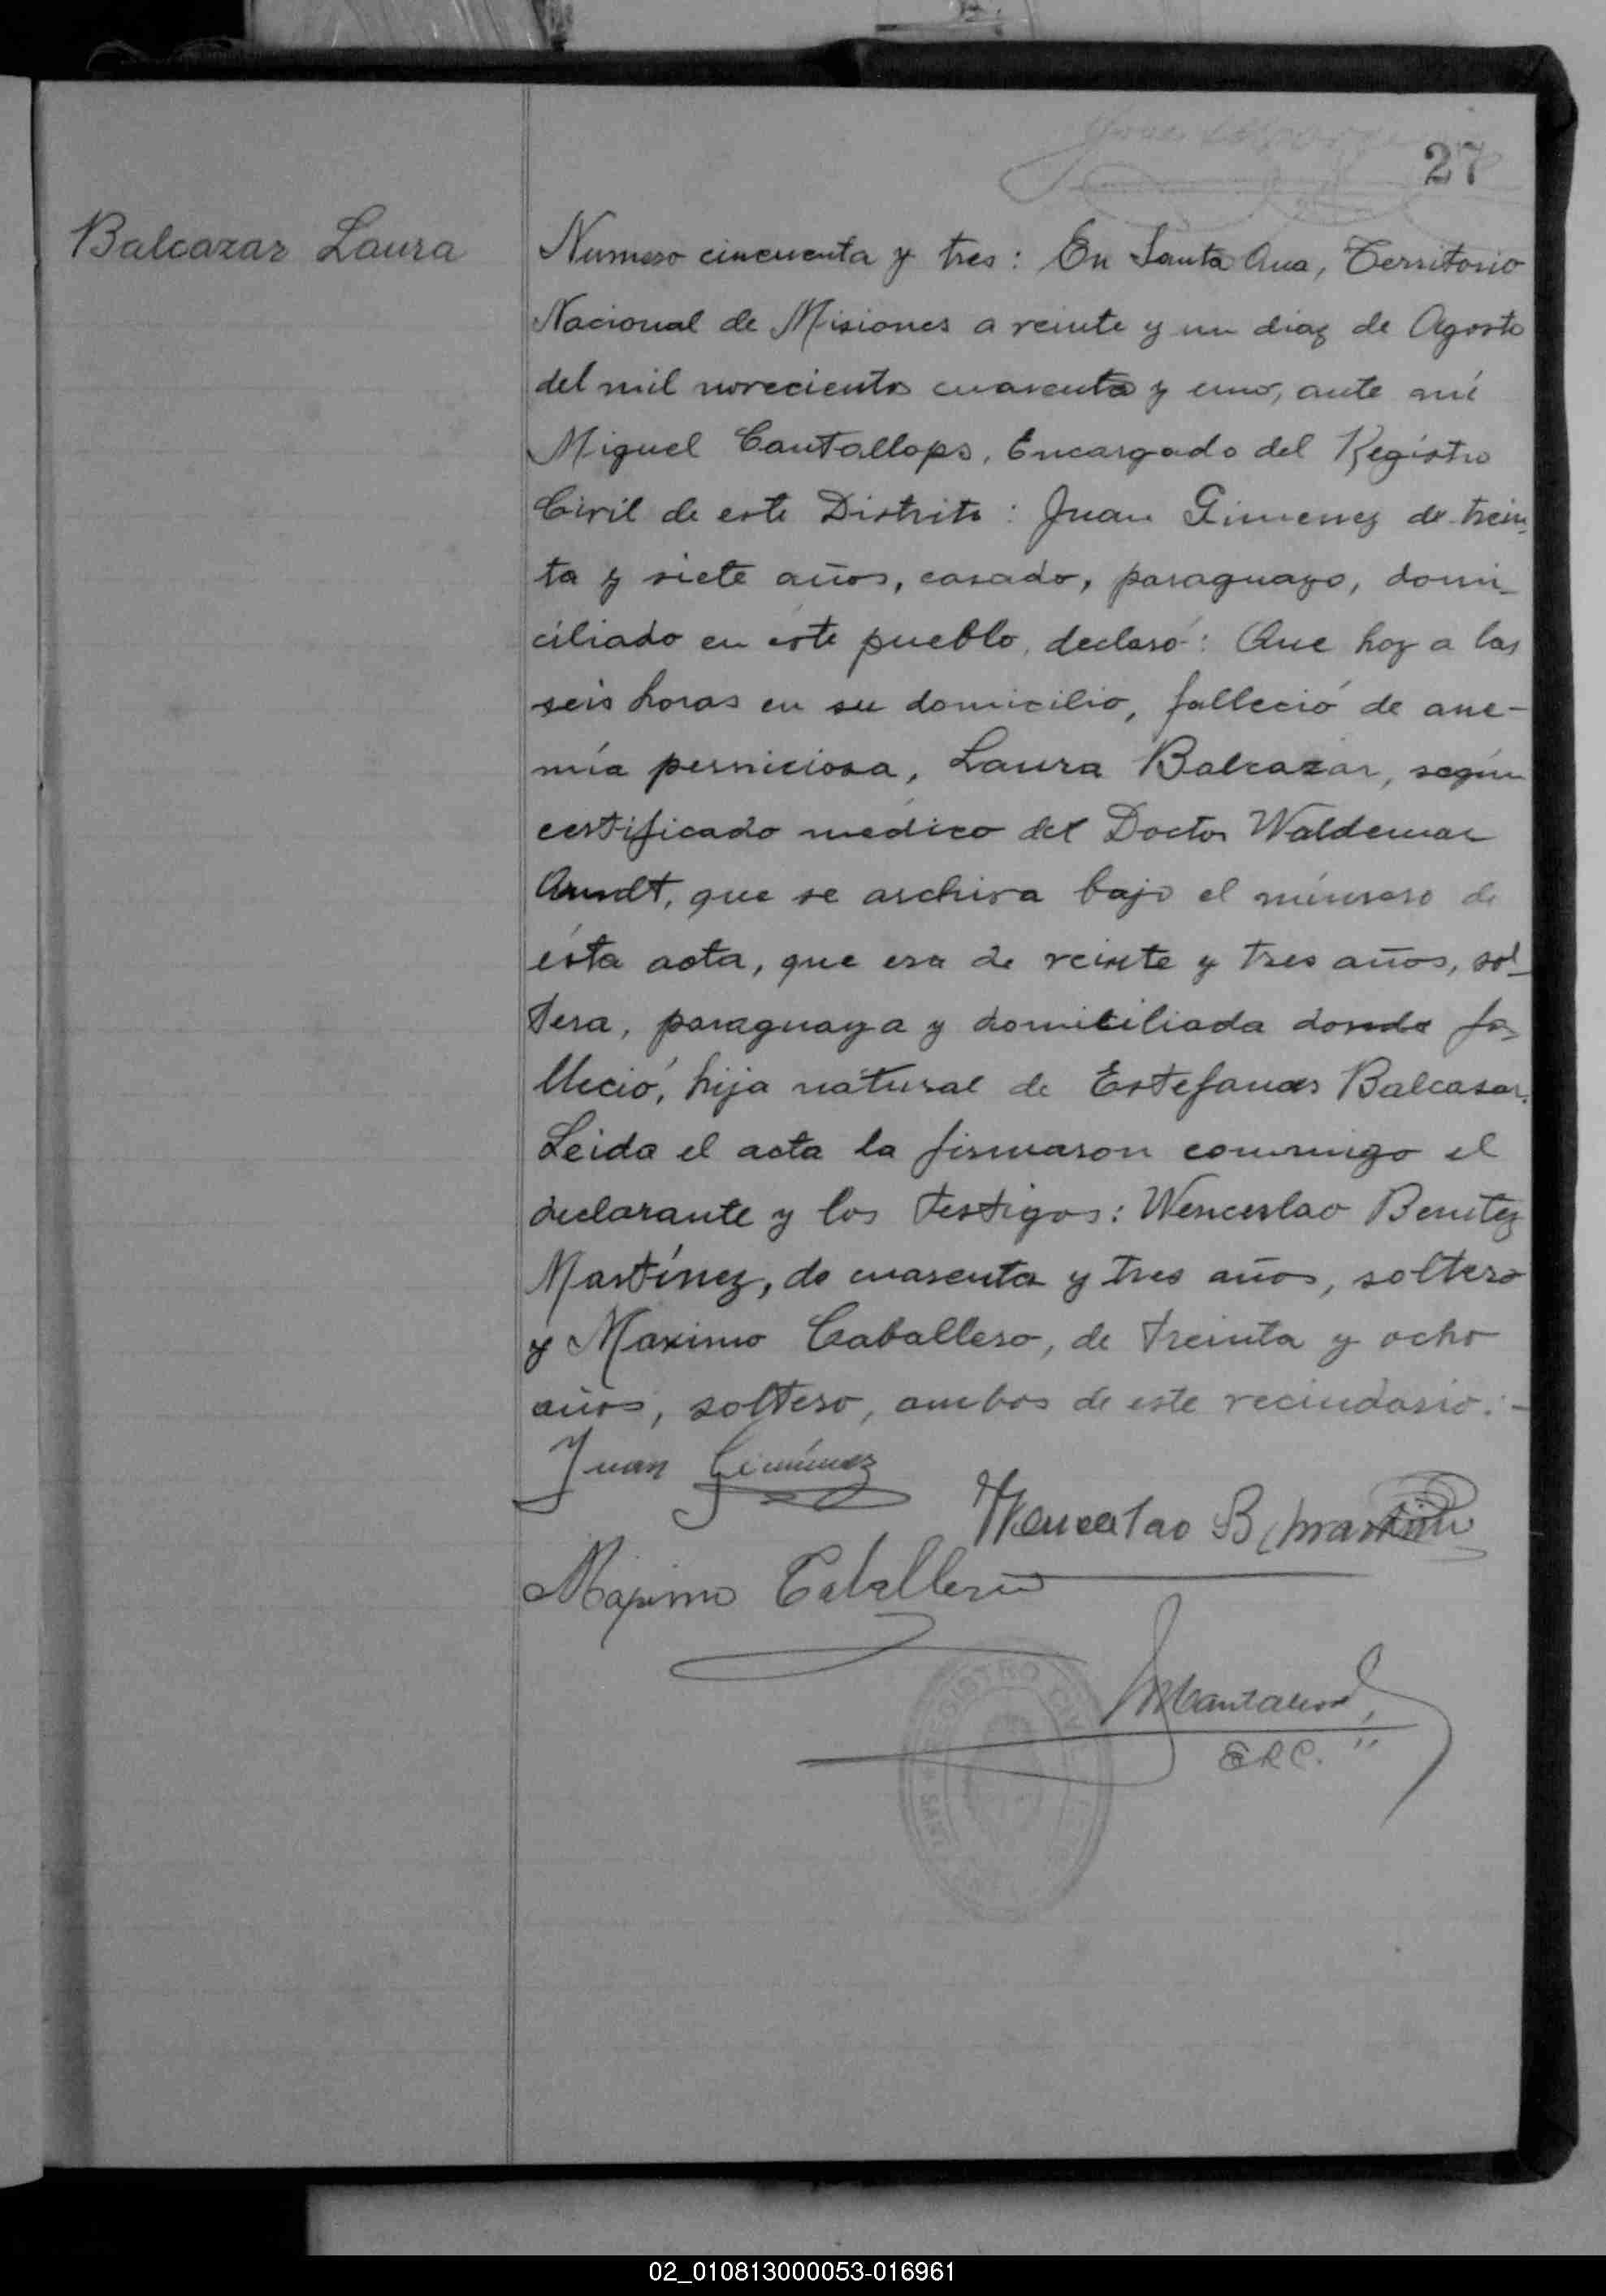 27
Balcazar Laura
Numero cincuenta y tres: En Santa Ana, Territorio
Nacional de Misiones a veinte y un diaz de Agosto
del mil novecientos cuarenta y uno, ante mí
Miguel Cantallops, Encargado del Registro
Civil de este Distrito: Juan Gimenez de trein
ta y siete años, casado, paraguayo, domi-
ciliado en éste pueblo, declaró: Que hoy a las
seis horas en su domicilio, falleció de ane-
mía perniciosa, Laura Balcazar, según
certificado médico del Doctor Waldemar
Arndt, que se archiva bajo el número de
ésta acta, que era de veinte y tres años, sol-
tera, paraguaya y domiciliada donde fa-
lleció, hija natural de Balcasar.
Leida el acta la firmaron conmigo el
declarante y los testigos: Wenceslao Benitez
Martínez, de cuarenta y tres años, soltero
y Maximo Caballero, de treinta y ocho
años, soltero, ambos de este vecindario.-
Juan Giménez
Wenceslao B. Martínez
Maximo Caballero
MCantallops
E.R.C.
REGISTRO CIVIL
SANTA
02_010813000053-016961